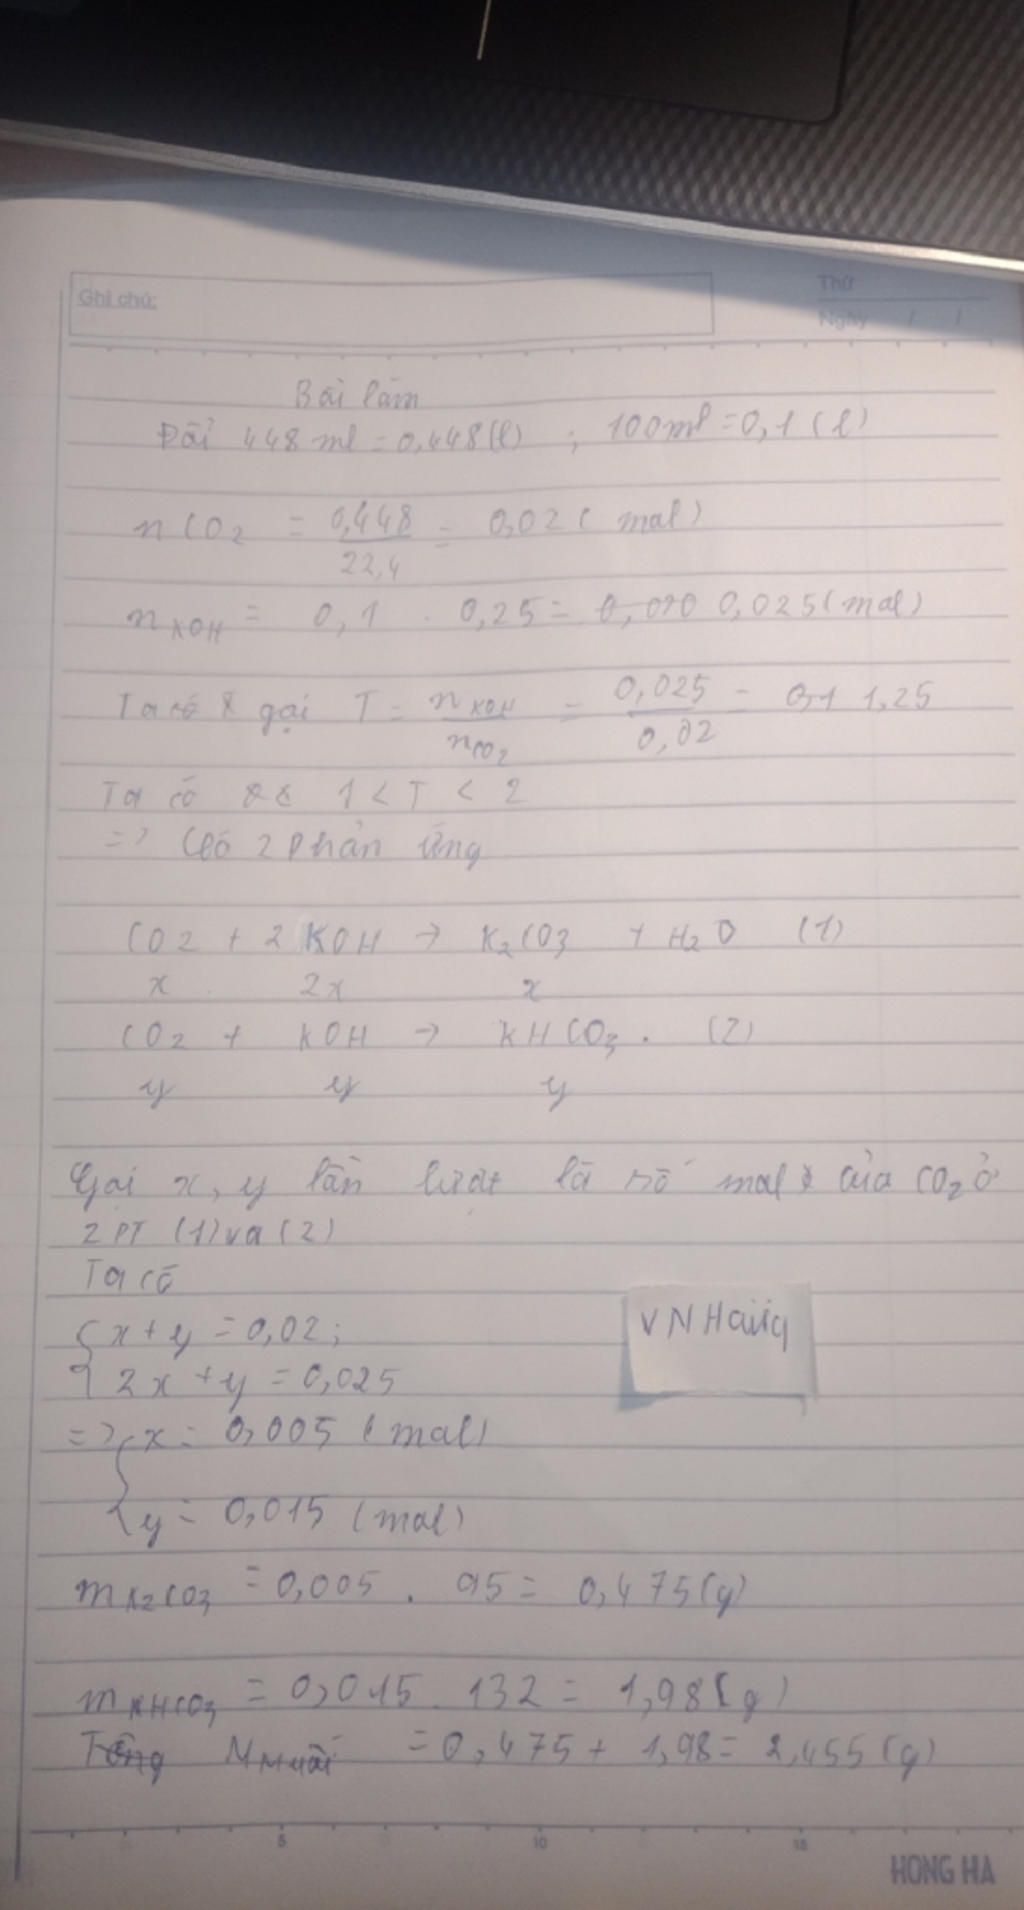 Ghi chú:
Thứ
Ngày / /
Bài làm
Đổi 448 ml = 0,448(l) ; 100ml = 0,1 (l)
nCO2 = 0,448/22,4 = 0,02 ( mol)
nKOH = 0,1 . 0,25 = 0,010 0,025(mol)
Ta có gọi T = nKOH/nCO2 = 0,025/0,02 = 0,1 1,25
Ta có 1 < T < 2
=> Có 2 phản ứng
CO2 + 2 KOH → K2CO3 + H2O (1)
x 2x x
CO2 + KOH → KHCO3 . (2)
y y y
Gọi x, y lần lượt là số mol của CO2 ở
2 PT (1) và (2)
Ta có
{ x + y = 0,02 ;
{ 2x + y = 0,025
=> { x = 0,005 (mol)
{ y = 0,015 (mol)
VN Hàng
mK2CO3 = 0,005 . 95 = 0,475(g)
mKHCO3 = 0,015 . 132 = 1,98 (g)
Tổng M Muối = 0,475 + 1,98 = 2,455 (g)
5 10 15
HONG HA